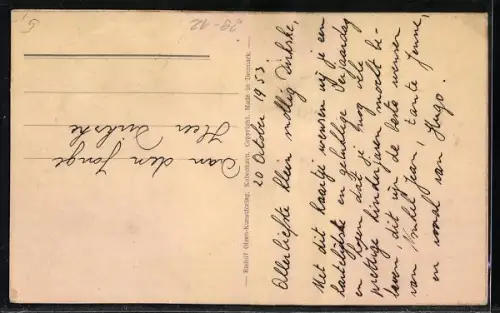 Aan den Jonge
Heer Dirkske
— Rudolf Olsen-Kunstforlag, Kobenhavn. Copyright. Made in Denmark. —
20 October 1953
Allerliefste klein mollig Dirkske,
Met dit kaartje wensen wij je een
hartelijkste en gelukkige Verjaardag
en Hopen dat je nog vele
prettige kinderjaren moogt be-
leven, dit zijn de beste wensen
van Nonkel Jean, tante Jenne,
en vooral van Hugo.